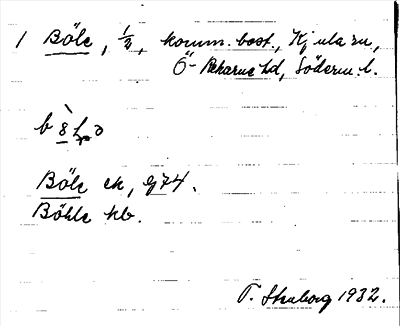 1 Böle, 1/2, komm. bost., Kjula sn,
Ö-Rekarne hd, Söderm. l.
Böle ek, Gj 74.
Böhle kb.
T. Stenborg 1932.